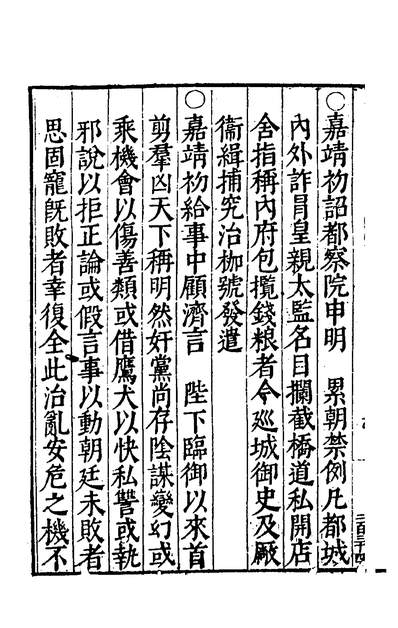 ○嘉靖初詔都察院申明　累朝禁例凡都城
內外詐冐皇親太監名目攔截橋道私開店
舍指稱內府包攬錢粮者令廵城御史及厰
衞緝捕究治枷號發遣
○嘉靖初給事中顧濟言　陛下臨御以來首
剪羣凶天下稱明然奸黨尚存陰謀變幻或
乘機會以傷善類或借鷹犬以快私讐或執
邪說以拒正論或假言事以動朝廷未敗者
思固寵旣敗者幸復全此治亂安危之機不